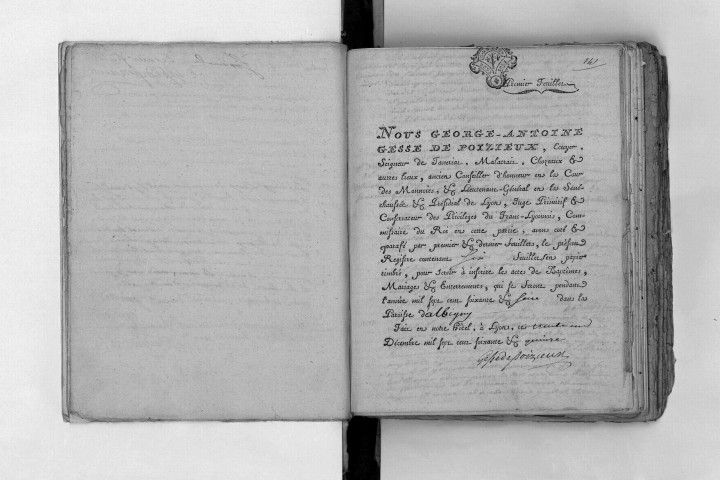 141
Premier Feuillet
NOUS GEORGE-ANTOINE
GESSE DE POIZIEUX, Ecuyer,
Seigneur de Janeriac, Malatrait, Chozeaux &
autres lieux, ancien Conseiller d'honneur en la Cour
des Monnoies, & Lieutenant-Général en la Séné-
chaussée & Présidial de Lyon, Juge Primitif &
Conservateur des Privileges du Franc-Lyonnois, Com-
missaire du Roi en cette partie, avons coté &
paraffé par premier & dernier feuillets, le présent
Registre contenant Six feuillets en papier
timbré, pour servir à inscrire les actes de Baptêmes,
Mariages & Enterrements, qui se feront pendant
l'année mil sept cent soixante & seize dans la
Paroisse d'albigny
Fait en notre Hôtel, à Lyon, ce trente un
Décembre mil sept cent soixante & quinze
Gesse de poizieux